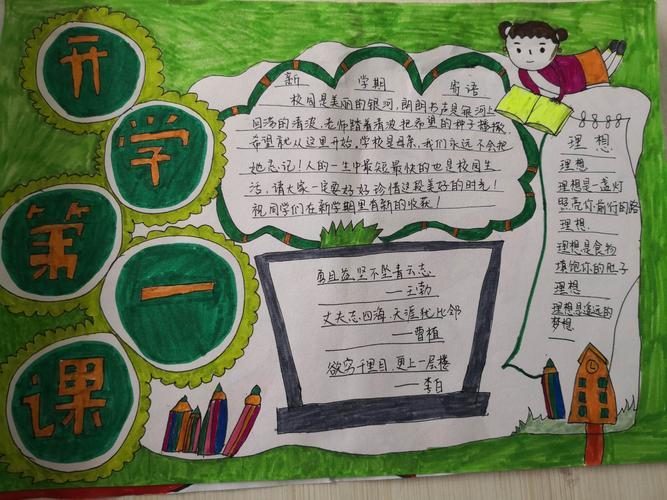 开
学
第
一
课
新 学期 寄语
校园是美丽的银河,朗朗书声是银河上
回荡的清波,老师踏着清波把希望的种子播撒,
希望就从这里开始,学校是母亲,我们永远不会把
她忘记!人的一生中最短最快的也是校园生
活,请大家一定要好好珍惜这段美好的时光!
祝同学们在新学期里有新的收获!
穷且益坚不坠青云志
——王勃
丈夫志四海,天涯犹比邻
——曹植
欲穷千里目,更上一层楼
——李白
理想
理想
理想是一盏灯
照亮你前行的路
理想
理想是食物
填饱你的肚子
理想
理想是遥远的
梦想